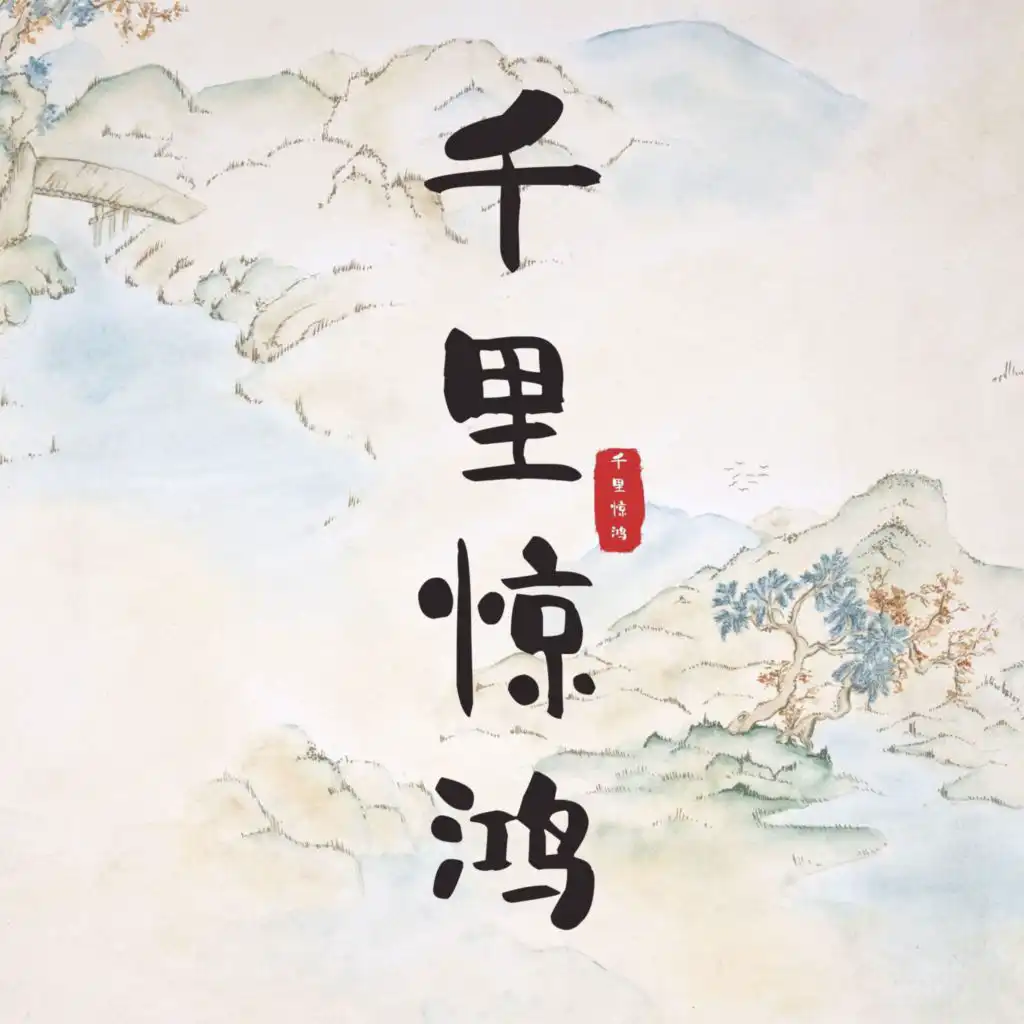 千里惊鸿
千里惊鸿